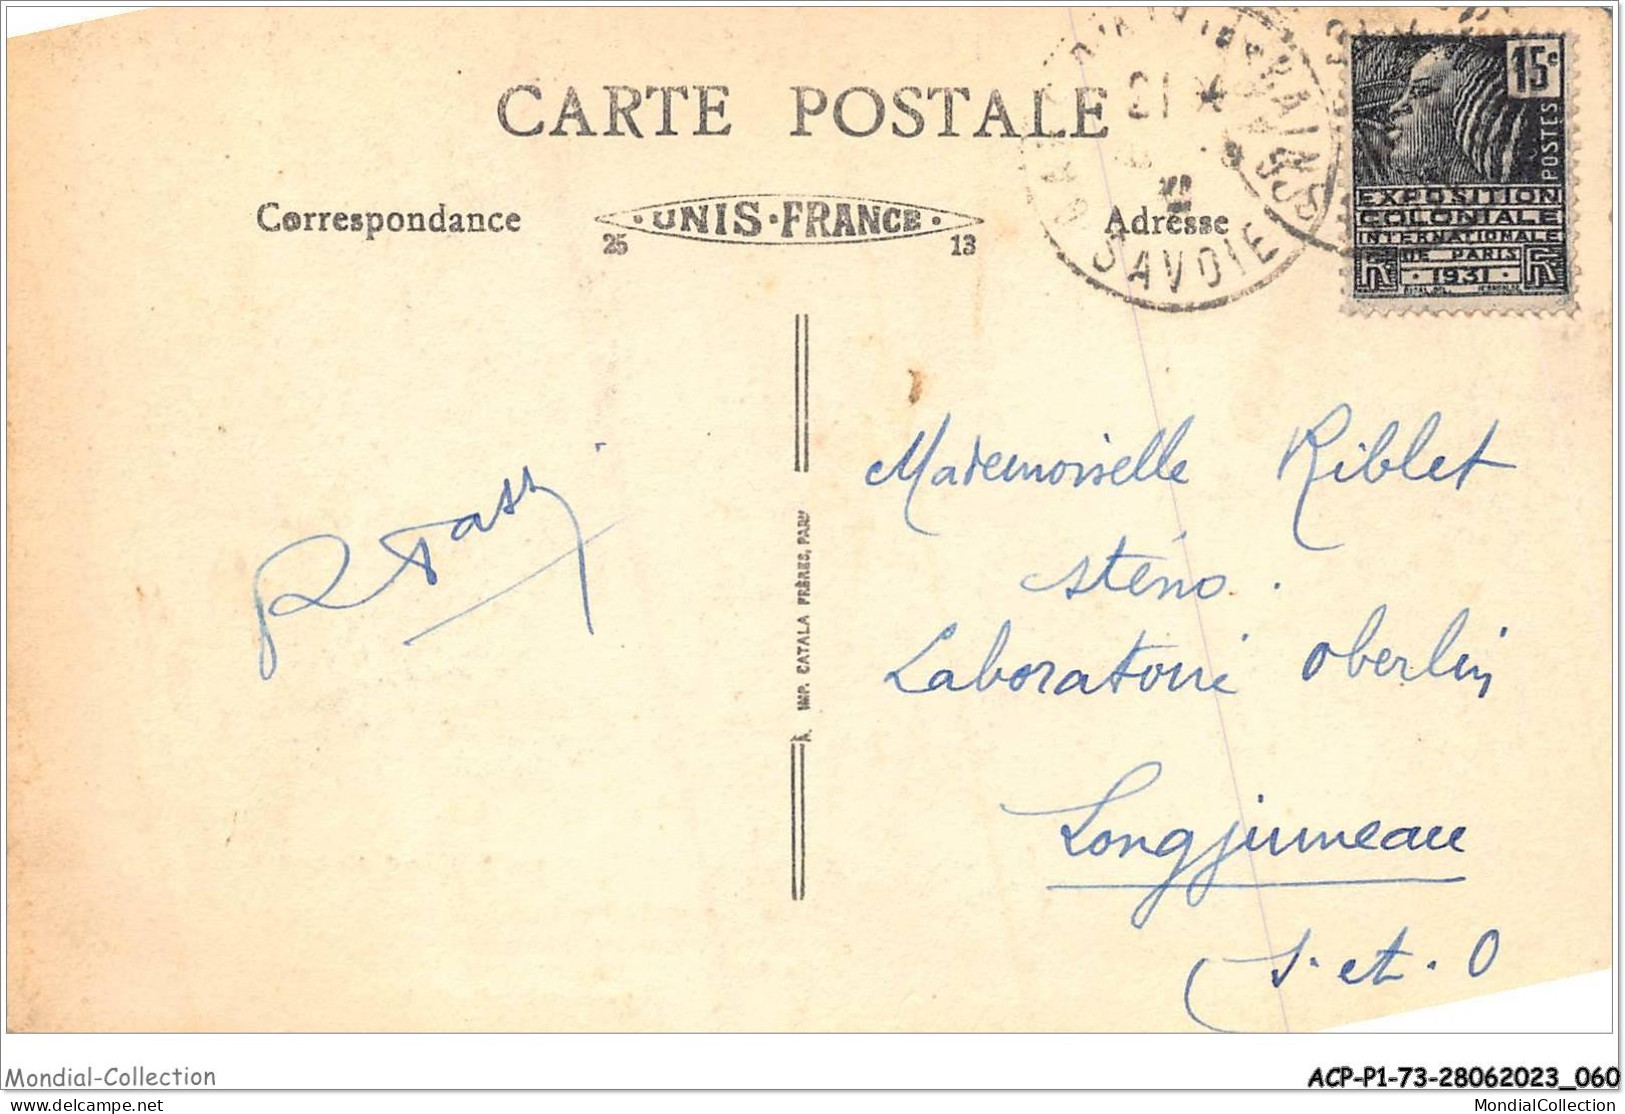 CARTE POSTALE
Correspondance
UNIS-FRANCE
25 13
Adresse
SAVOIE
15c
POSTES
EXPOSITION
COLONIALE
INTERNATIONALE
DE PARIS
1931
RF
Mademoiselle Riblet
sténo.
Laboratoire Oberlin
Longjumeau
S. et. O
IMP. CATALA FRÈRES, PARIS
Mondial-Collection
ACP-P1-73-28062023_060
www.delcampe.net
MondialCollection